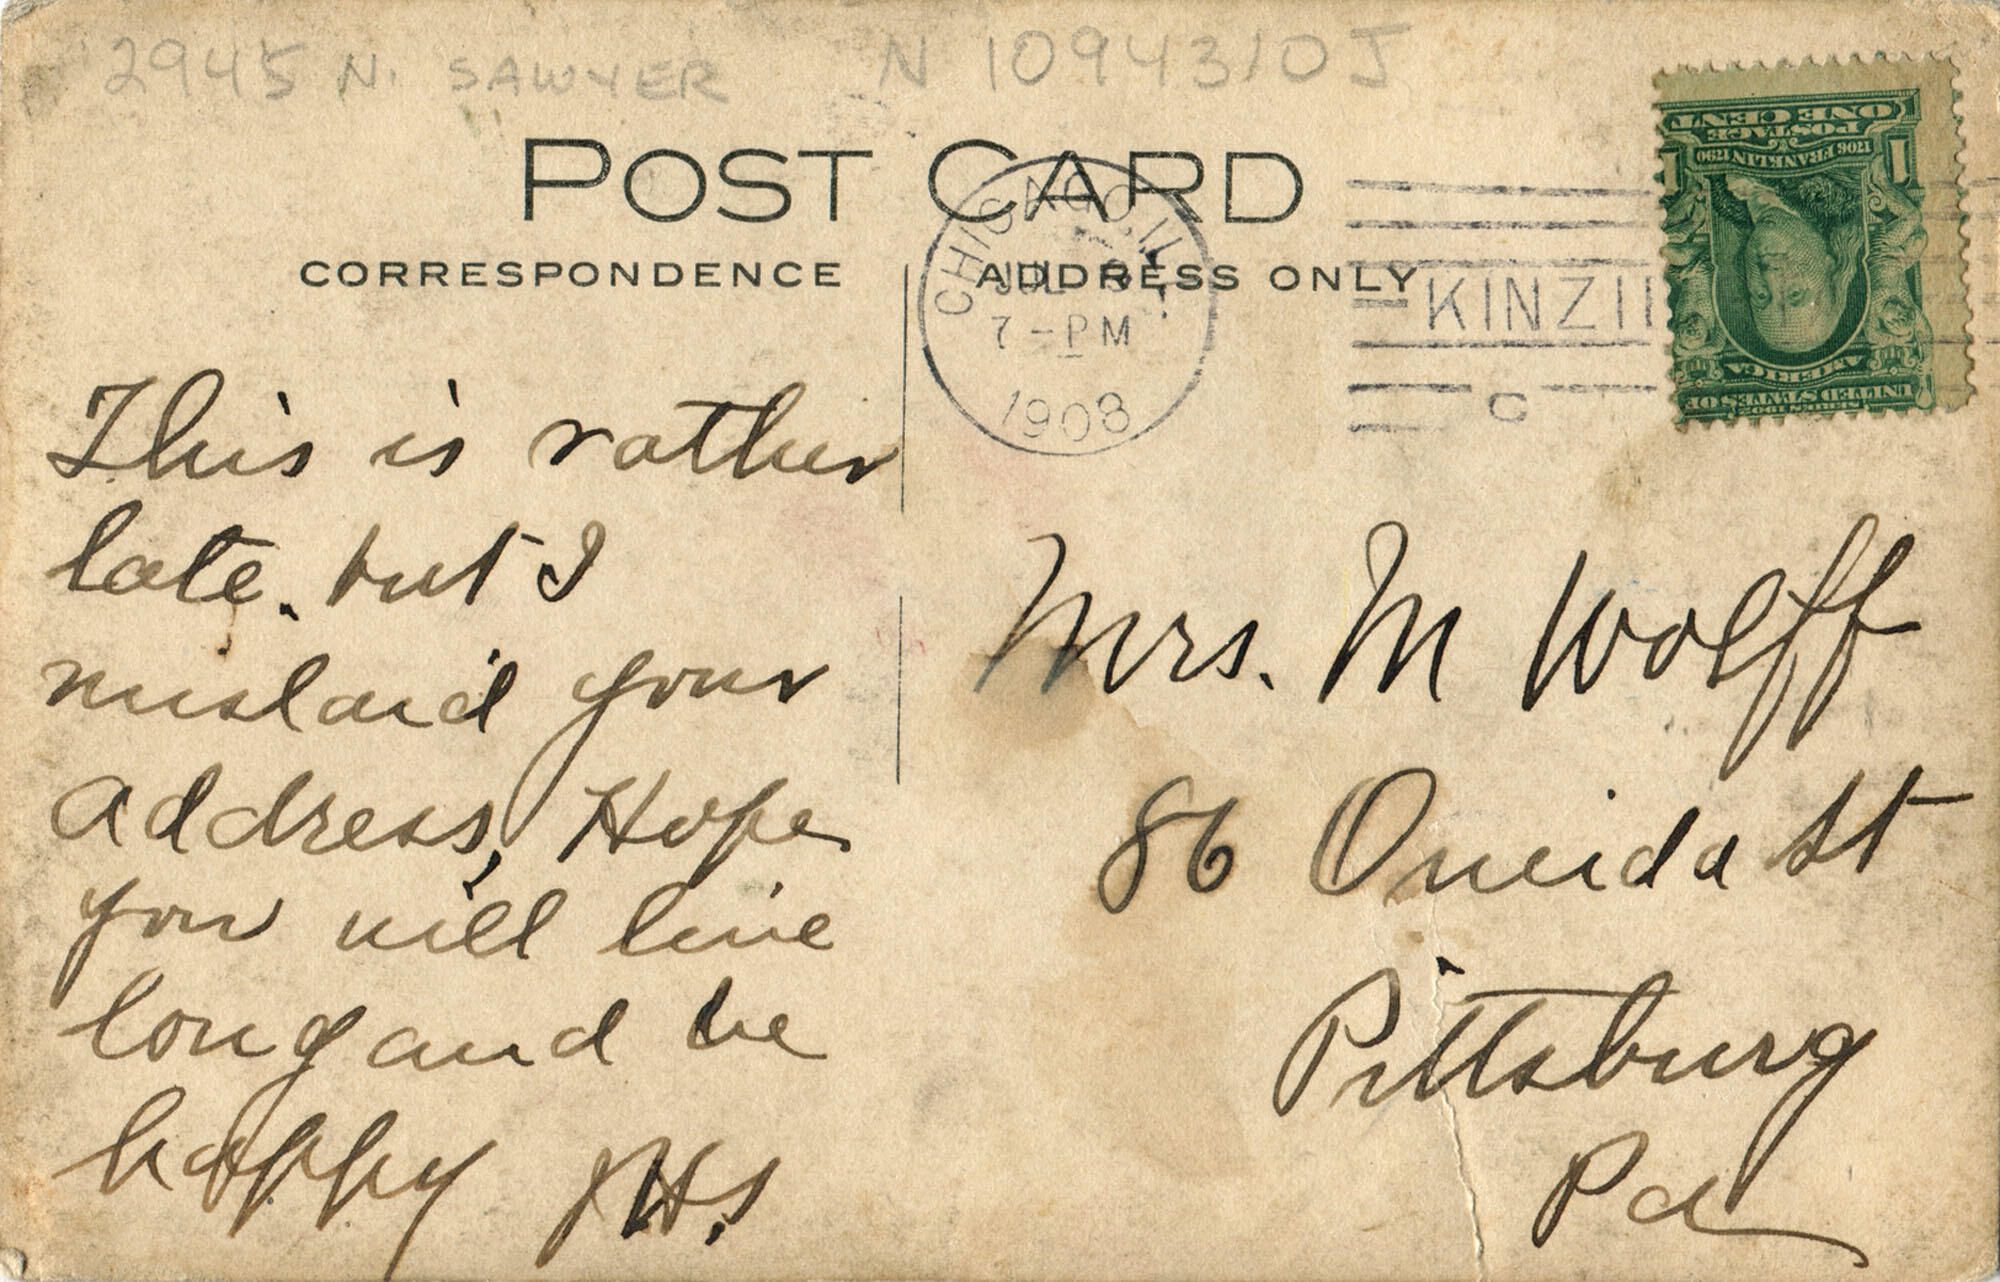 2945 N. SAWYER N 1094310J
POST CARD
CORRESPONDENCE
ADDRESS ONLY
CHICAGO, ILL.
JUL
7-PM
1908
KINZI
C
ONE CENT
POSTAGE
1706 FRANKLIN 1790
1 1
SERIES 1902
UNITED STATES OF
AMERICA
This is rather
late. but I
mislaid your
address, Hope
you will live
long and be
happy H.S
Mrs. M Wolff
86 Oneida St
Pittsburg
Pa